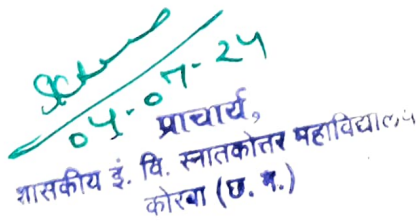 04-07-24
प्राचार्य,
शासकीय इं. वि. स्नातकोत्तर महाविद्यालय
कोरबा (छ. ग.)